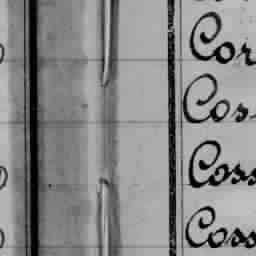 Cor
Cos
Coss
Coss